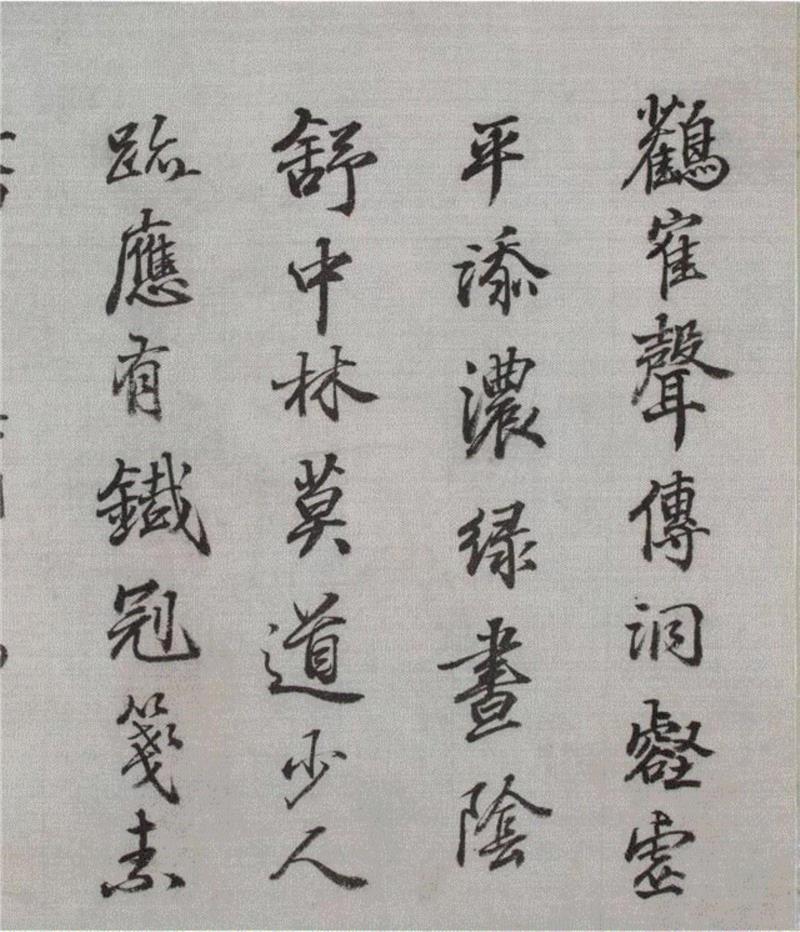 鸛寉聲傳洞壑虛
平添濃綠晝陰
舒中林莫道少人
跡應有鐵冠箋素